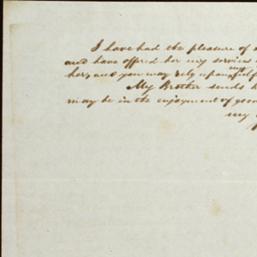 I have had the pleasure of
and have offered her my services
her, and you may rely upon my
My Brother sends
may be in the enjoyment of good
my